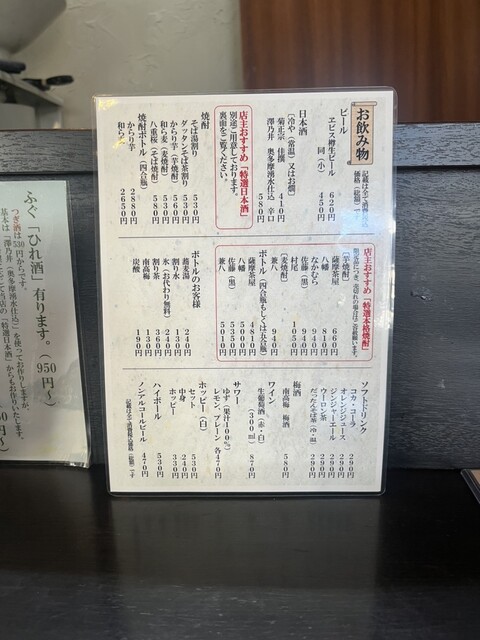 お飲み物
記載は全て消費税込
価格(総額)です
ビール
ヱビス樽生ビール 620円
同(小) 450円
日本酒
(冷や(常温)又はお燗)
菊正宗 佳撰 410円
澤乃井 奥多摩湧水仕込 辛口
580円
店主おすすめ「特選日本酒」
別途ご用意しております。
裏面をご覧ください。
焼酎
そば湯割り 530円
ダッタンそば茶割り 530円
からり芋(芋焼酎) 560円
和ら麦(麦焼酎) 500円
八重桜(そば焼酎) 580円
焼酎ボトル(四合瓶)
からり芋 2880円
和ら麦 2650円
店主おすすめ「特選本格焼酎」
限定品につき、売切れの場合はご容赦願います。
[芋焼酎]
薩摩茶屋 660円
八幡 810円
なかむら 940円
佐藤(黒) 940円
村尾 1050円
[麦焼酎]
兼八 940円
ボトル(四合瓶もしくは五合瓶)
薩摩茶屋 4815円
八幡 5000円
佐藤(黒) 5350円
兼八 5500円
ボトルのお客様
蕎麦湯 240円
割り水 130円
氷(お代わり無料) 240円
割り茶 360円
南高梅 130円
炭酸 190円
ソフトドリンク
コカ・コーラ 290円
オレンジジュース 290円
ジンジャーエール 290円
ウーロン茶 290円
だったんそば茶(冷・温) 290円
梅酒
南高梅 梅酒 580円
ワイン
生葡萄酒(赤・白)
(300ml) 870円
サワー
ゆず(果汁100%)
レモン、プレーン 各470円
ホッピー(白)
セット 530円
中身 240円
ホッピー 330円
ハイボール 530円
ノンアルコールビール 470円
記載は全て消費税込価格(総額)です
ふぐ「ひれ酒」有ります。(950円~)
つぎ酒は530円からです。
基本は「澤乃井(奥多摩湧水仕込)」を使ってお作りしますが、